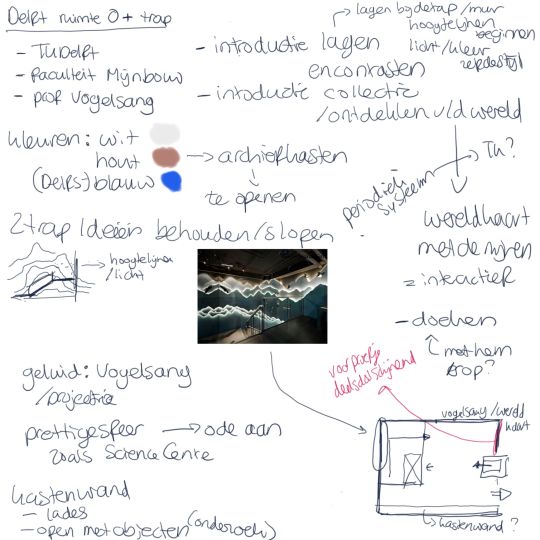 Delft ruimte 0 + trap
- TU Delft
- Faculteit Mijnbouw
- prof Vogelsang
- introductie lagen
en contrasten
- introductie collectie
/ontdekken v/d wereld
lagen bij de trap / muur
hoogtelijnen
beginnen
licht/kleur
kleuren: wit
hout
(Delfs) blauw
archiefkasten
te openen
periodiek
systeem
TU?
2 trap Ideeën behouden/slopen
hoogtelijnen
/licht
wereldkaart
met de mijnen
= interactief
- doeken
met hem
erop?
geluid: Vogelsang
/projectie
prettige sfeer → ode aan
zoals Science Centre
voorproefje
deels doorschijnend
vogelsang/wereld
kaart
kastenwand?
kastenwand
- lades
- open met objecten (onderzoek)